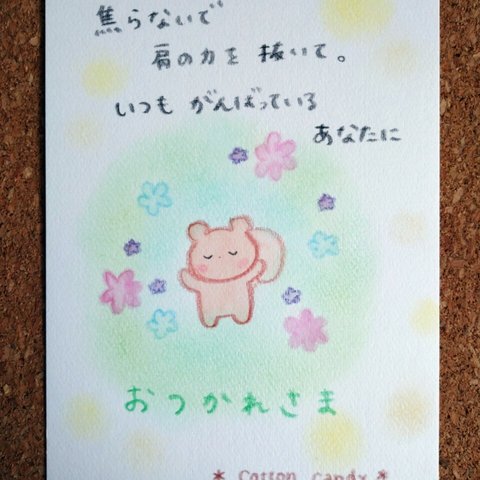 焦らないで
肩の力を 抜いて。
いつも がんばっている
あなたに
おつかれさま
* Cotton candy *